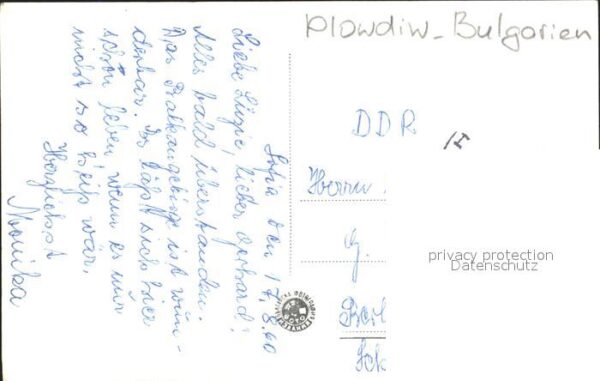 Sofia den 17.8.60
Liebe Süzie, lieber Gerhard!
Alles bald überstanden.
Das Balkangebirge ist wun-
derbar. Es läßt sich hier
schön leben, wenn es nur
nicht so heiß wär,
Herzlichst
Monika
Plowdiw-Bulgarien
DDR
Herrn
G.
privacy protection
Datenschutz